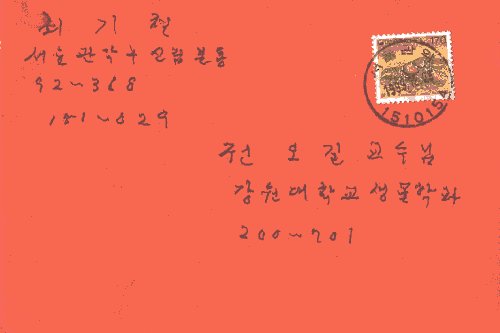 최 기 철
서울 관악구 신림본동
92~368
151-029
권 오 길 교수님
강원대학교 생물학과
200~701
151015